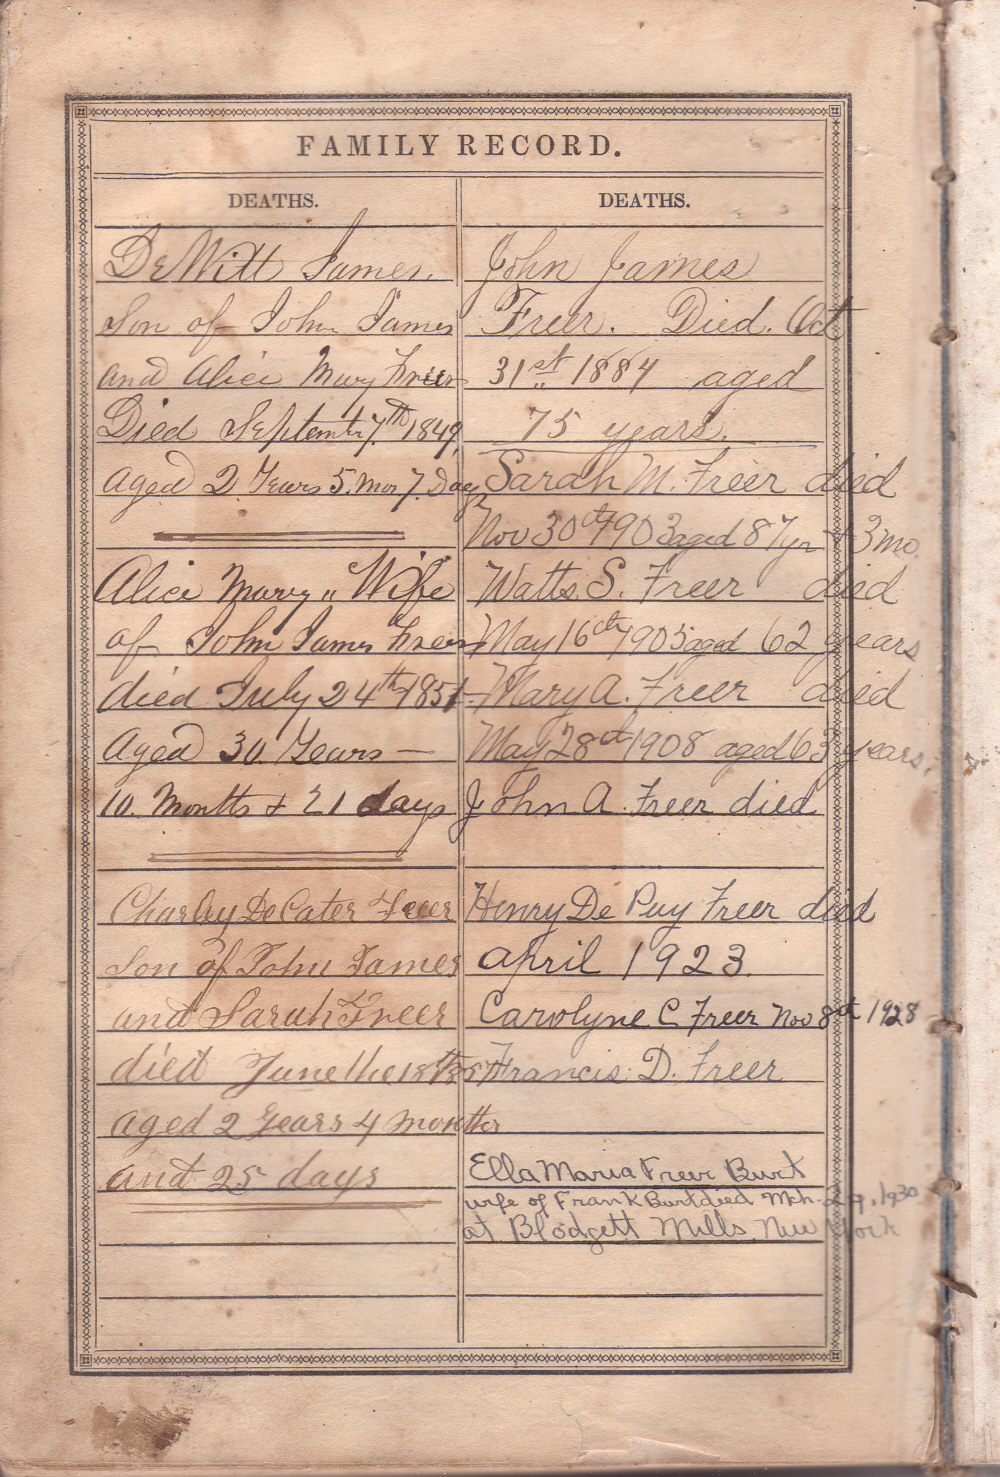 FAMILY RECORD.
DEATHS.
DeWitt James.
Son of John James
and Alice Mary Freer
Died September 7th 1849,
aged 2 Years 5. Mon 7. Days
Alice Mary " Wife
of John James Freer
died July 24th 1851
Aged 30 Years —
10. Months & 21 days
Charley DeCater Freer
Son of John James
and Sarah Freer
died June the 18th
aged 2 Years 4 months
and 25 days
DEATHS.
John James
Freer. Died. Oct
31st 1884 aged
75 years.
Sarah M. Freer died
Nov 30th 1903 aged 87yr + 3mo.
Watts S. Freer died
May 16th 1905 aged 62 years
Mary A. Freer died
May 28th 1908 aged 63 years.
John A. Freer died
Henry De Puy Freer died
April 1923.
Carolyne C. Freer Nov 8st 1928
Francis D. Freer
Ella Maria Freer Burt
wife of Frank Burt died Mch. 1930
at Blodgett Mills, New York